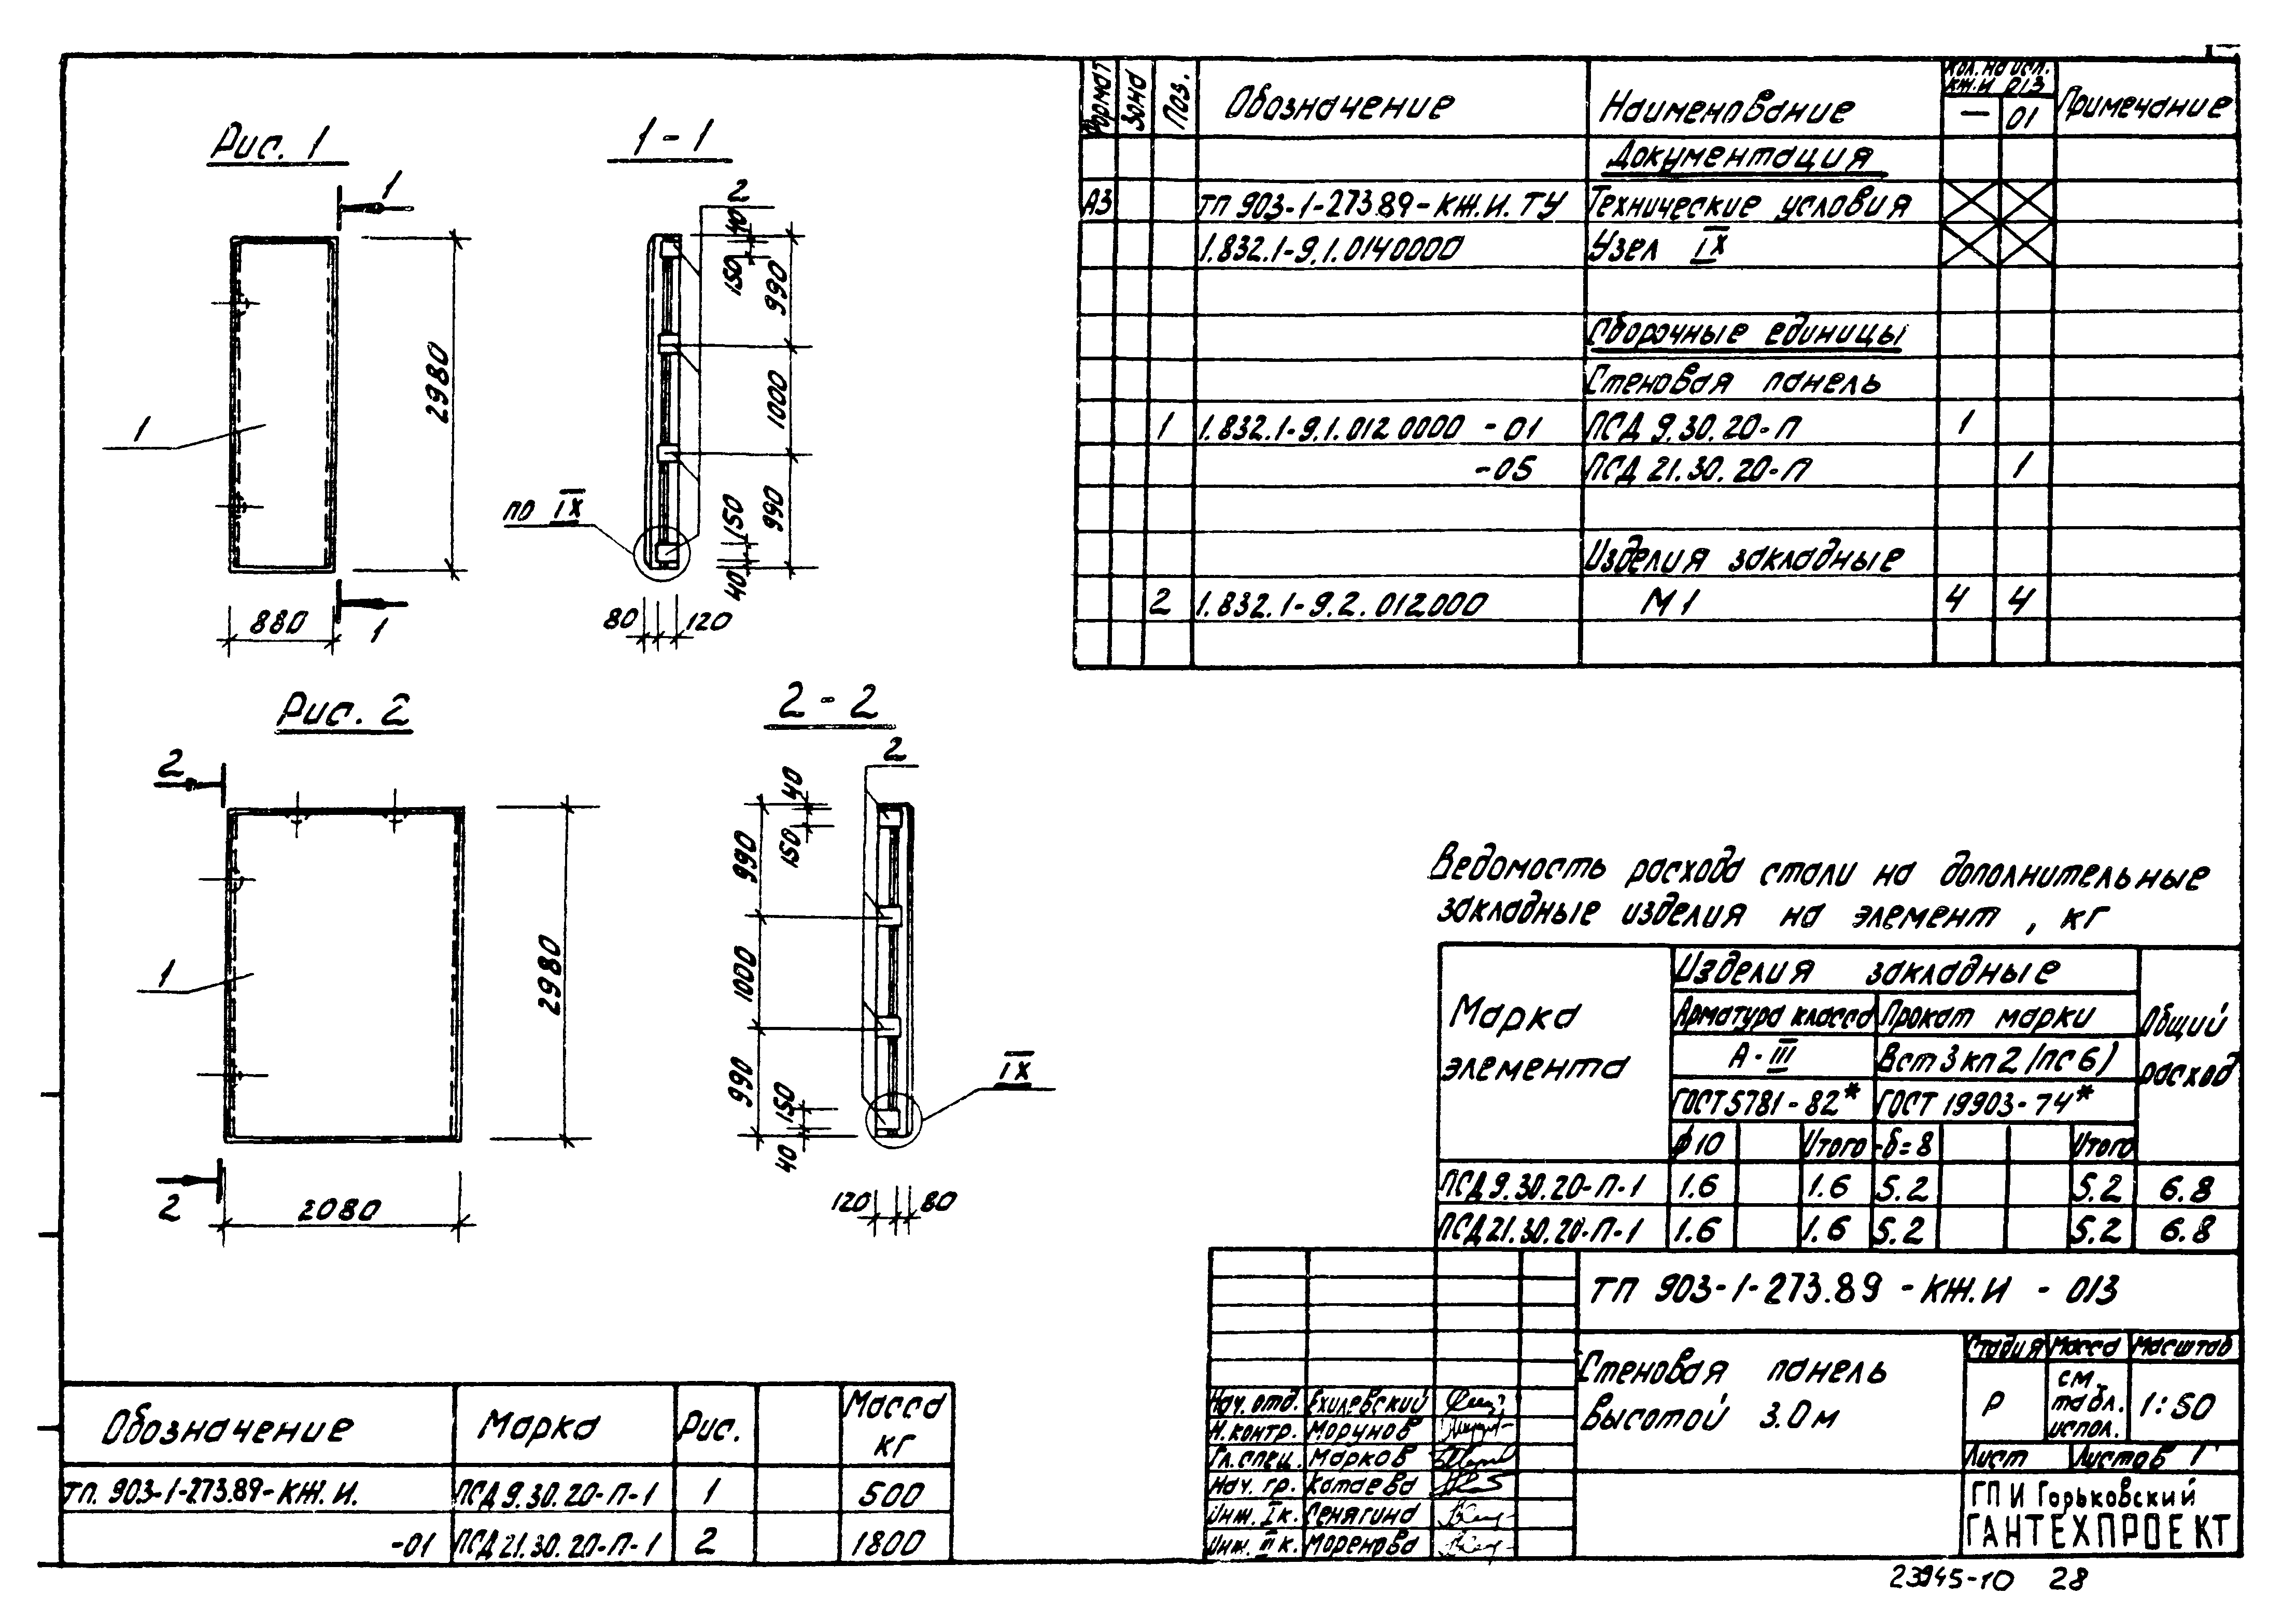 Рис. 1
1
2980
1
880
1
1 - 1
2
40
150
990
1000
990
150
40
по IX
80
120
Рис. 2
2
2980
1
2
2080
2 - 2
2
40
150
990
1000
990
150
40
IX
120
80
Формат Зона Поз. Обозначение Наименование Кол. на исп. КЖ.И 013 Примечание
— 01
Документация
А3 ТП 903-1-273.89-КЖ.И.ТУ Технические условия
1.832.1-9.1.0140000 Узел IX
Сборочные единицы
Стеновая панель
1 1.832.1-9.1.012 0000 -01 ПСД 9.30.20-П 1
-05 ПСД 21.30.20-П 1
Изделия закладные
2 1.832.1-9.2.012.000 М1 4 4
Ведомость расхода стали на дополнительные
закладные изделия на элемент , кг
Марка элемента Изделия закладные Общий расход
Арматура класса Прокат марки
А-III Вст 3 кп 2 (пс 6)
ГОСТ 5781-82* ГОСТ 19903-74*
ф10 Итого -δ=8 Итого
ПСД 9.30.20-П-1 1.6 1.6 5.2 5.2 6.8
ПСД 21.30.20-П-1 1.6 1.6 5.2 5.2 6.8
ТП 903-1-273.89 -КЖ.И - 013
Стеновая панель
высотой 3.0м
Стадия Масса Масштаб
Р см. табл. испол. 1:50
Лист Листов 1
ГПИ Горьковский
САНТЕХПРОЕКТ
Нач. отд. Ехилевский
Н.контр. Морунов
Гл.спец. Марков
Нач. гр. Катаева
Инж. I к. Сенягина
Инж. III к. Моренова
Обозначение Марка Рис. Масса кг
ТП. 903-1-273.89-КЖ.И. ПСД 9.30.20-П-1 1 500
-01 ПСД 21.30.20-П-1 2 1800
23945-10 28